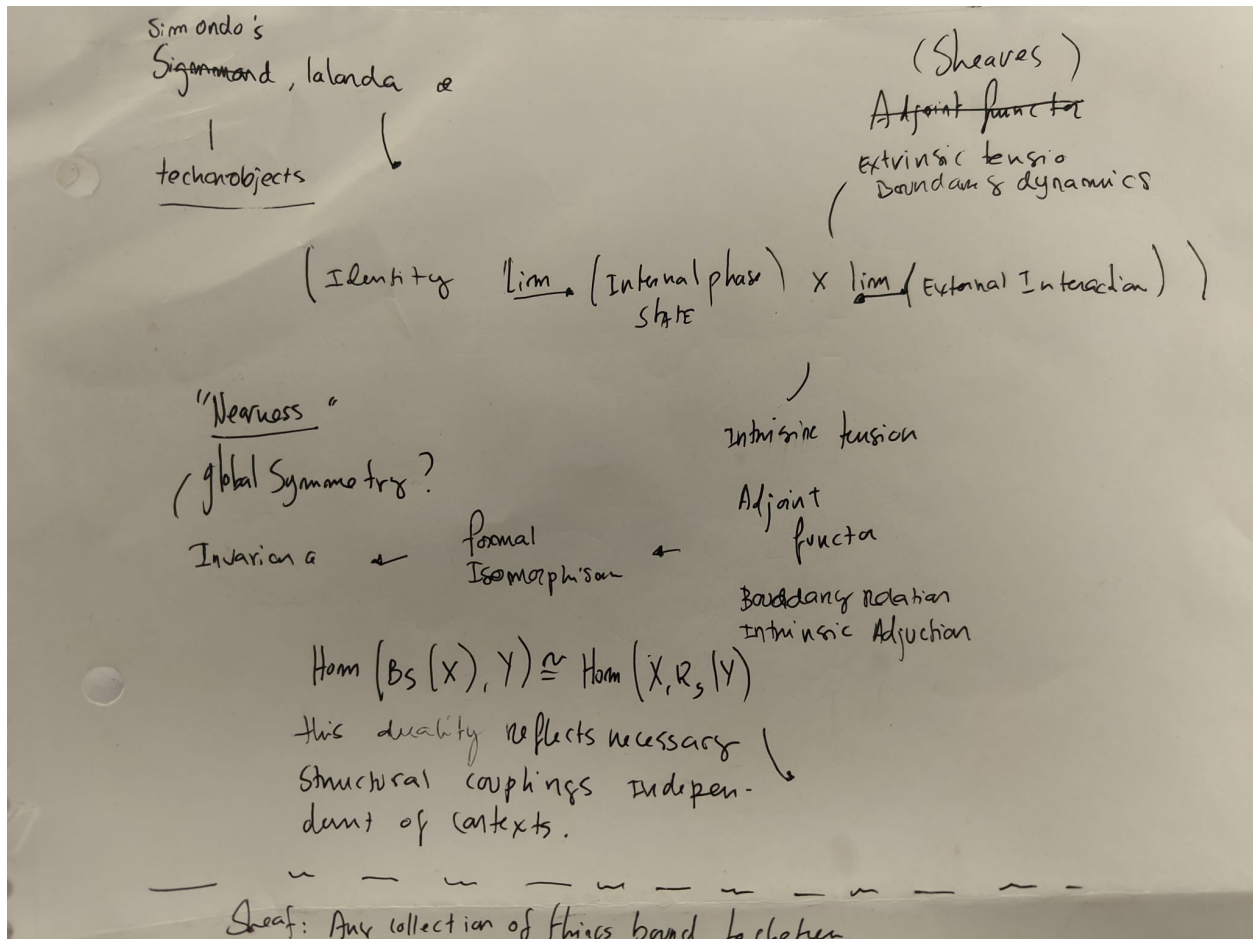 Simondo's
Sigmmond, lalanda &
techonobjects
(Sheaves)
Adjoint functor
Extrinsic tensio
Boundary dynamics
(Identity lim (Internal phase) x lim (External Interaction))
STATE
"Nearness"
Intrinsinc tension
global Symmetry?
Adjoint
functor
Invariana
formal
Isomorphism
Bouddary relation
Intrinsic Adjuction
Hom (Bs(X), Y) ≅ Hom (X, Rs(Y)
this duality reflects necessary
Structural couplings Indepen-
dent of contexts.
Sheaf: Any collection of things bound together